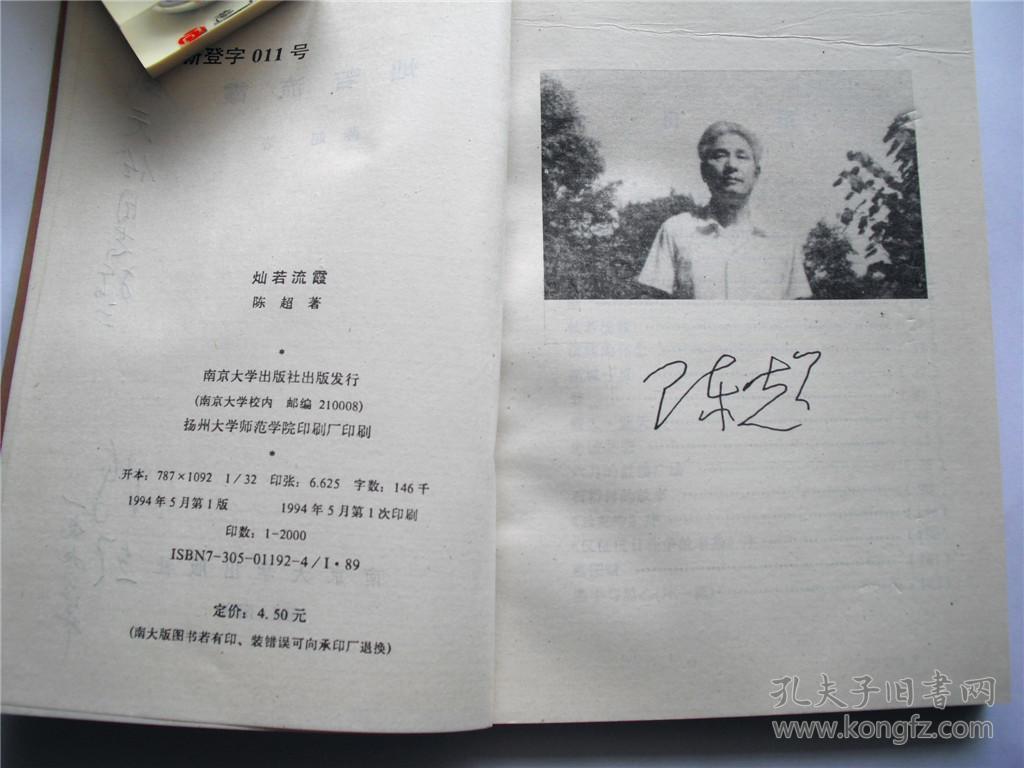 新登字 011 号
灿若流霞
陈 超 著
南京大学出版社出版发行
(南京大学校内 邮编 210008)
扬州大学师范学院印刷厂印刷
开本: 787×1092 1/32 印张: 6.625 字数: 146 千
1994 年 5 月第 1 版 1994 年 5 月第 1 次印刷
印数: 1-2000
ISBN7-305-01192-4/I·89
定价: 4.50 元
(南大版图书若有印、装错误可向承印厂退换)
陈超
孔夫子旧书网
www.kongfz.com